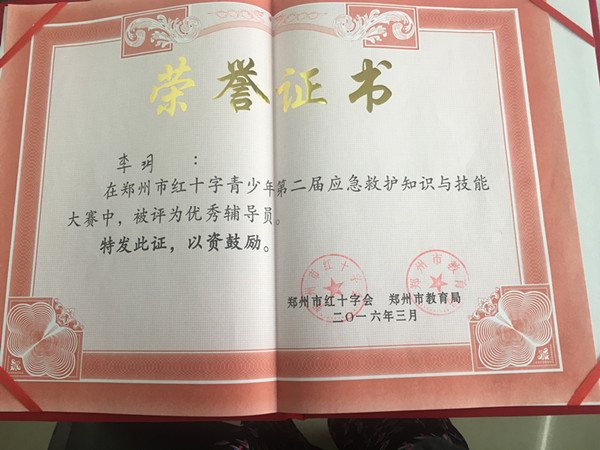 荣誉证书
李玥：
在郑州市红十字青少年第二届应急救护知识与技能
大赛中，被评为优秀辅导员。
特发此证，以资鼓励。
郑州市红十字会 郑州市教育局
二〇一六年三月
郑州市红十字会
郑州市教育局